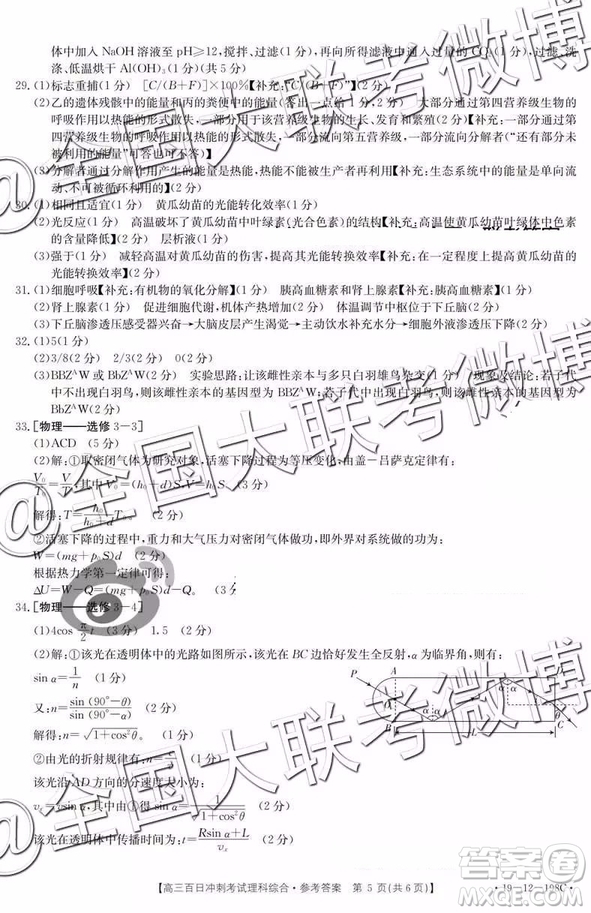 体中加入 NaOH 溶液至 pH≥12,搅拌、过滤(1分) 向滤液中通入足量的 CO₂(1分) 过滤、洗
涤、低温烘干 Al(OH)₃(1分)(共5分)
29.(1)标志重捕(1分) [C/(B+F)]×100%【补充:"C/(B+F)"】(2分)
(2)乙的遗体残骸中的能量和丙的粪便中的能量(2分) 大部分通过第四营养级生物的
呼吸作用以热能的形式散失,一部分用于该营养级生物的生长、发育和繁殖【补充:一部分通过第
四营养级生物的呼吸作用以热能的形式散失,一部分流向分解者("还有部分未
被利用的能量"可答也可不答)】(2分)
(3)通过分解作用产生的能量是以热能的形式散失的【补充:生态系统中的能量是
不能循环利用的】(2分)
30.(1)相同且适宜(1分) 黄瓜幼苗的光能转化效率(1分)
(2)光反应(1分) 高温破坏了黄瓜幼苗中叶绿素(光合色素)的结构【补充:高温使黄瓜幼苗叶绿体中色素
的含量降低】(2分) 层析液(1分)
(3)强于(1分) 减轻高温对黄瓜幼苗的伤害,提高光能转换效率【补充:在一定程度上提高黄瓜幼苗的
光能转换效率】(2分)
31.(1)细胞呼吸【补充:有机物的氧化分解】(1分) 胰高血糖素和肾上腺素【补充:胰高血糖素】(1分)
(2)肾上腺素(1分) 促进细胞代谢,机体产热增加(2分) 体温调节中枢(或下丘脑)(1分)
(3)下丘脑渗透压感受器兴奋→大脑皮层产生渴觉→主动饮水补充水分→细胞外液渗透压下降(2分)
32.(1)5(1分)
(2)3/8(2分) 2/3(2分) 0(2分)
(3)BBZᴬW 或 BbZᴬW(2分) 实验思路:让该雌性亲本与多只白羽雄鸟杂交(1分) 现象及结论:若子代
中不出现白羽鸟,则该雌性亲本的基因型为 BBZᴬW;若子代中出现白羽鸟,则该雌性亲本的基因型为
BbZᴬW(2分)
33.[物理——选修3—3]
(1)ACD (5分)
(2)解:①取密闭气体为研究对象,活塞上升过程为等压变化,由盖—吕萨克定律有:
V₀/T₀=V/T,其中V₀=h₀S,V=(h₀+d)S (3分)
解得:T=(h₀+d)/h₀ T₀。 (2分)
②活塞下降过程中,重力和大气压力对密闭气体做功,即外界对系统做的功为:
W=(mg+p₀S)d (2分)
根据热力学第一定律可得:
ΔU=W-Q=(mg+p₀S)d-Q。 (3分)
34.[物理——选修3—4]
(1)4cos π/2 t (3分) 1.5 (2分)
(2)解:①该光在透明体中的光路如图所示,该光在 BC 边恰好发生全反射,α为临界角,则有:
sin α=1/n (1分)
又:n=sin (90°-θ)/sin (90°-α) (2分)
解得:n=√(1+cos²θ)。 (2分)
②由光的折射规律有:v=c/n (1分)
该光沿 AD 方向的分速度大小为:
vₓ=vsin α,其中由①得 sin α=1/√(1+cos²θ) (2分)
该光在透明体中传播时间为:t=(Rsin α+L)/vₓ (2分)
P
A
D
B
C
R
L
α
θ
【高三百日冲刺考试理科综合·参考答案 第5页(共6页)】
·19-12-198C·
@全国大联考微博
@全国大联考微博
@全国大联考微博